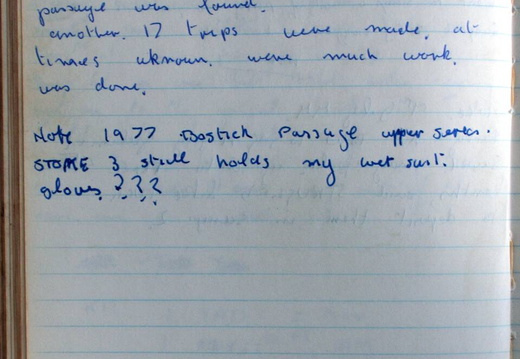 passage was found.
another. 17 trips were made. at
times uknown. were much work.
was done.
Note 1977 Bostick Passage upper series.
STOMPE 3 still holds my wet suit.
gloves ? ? ?